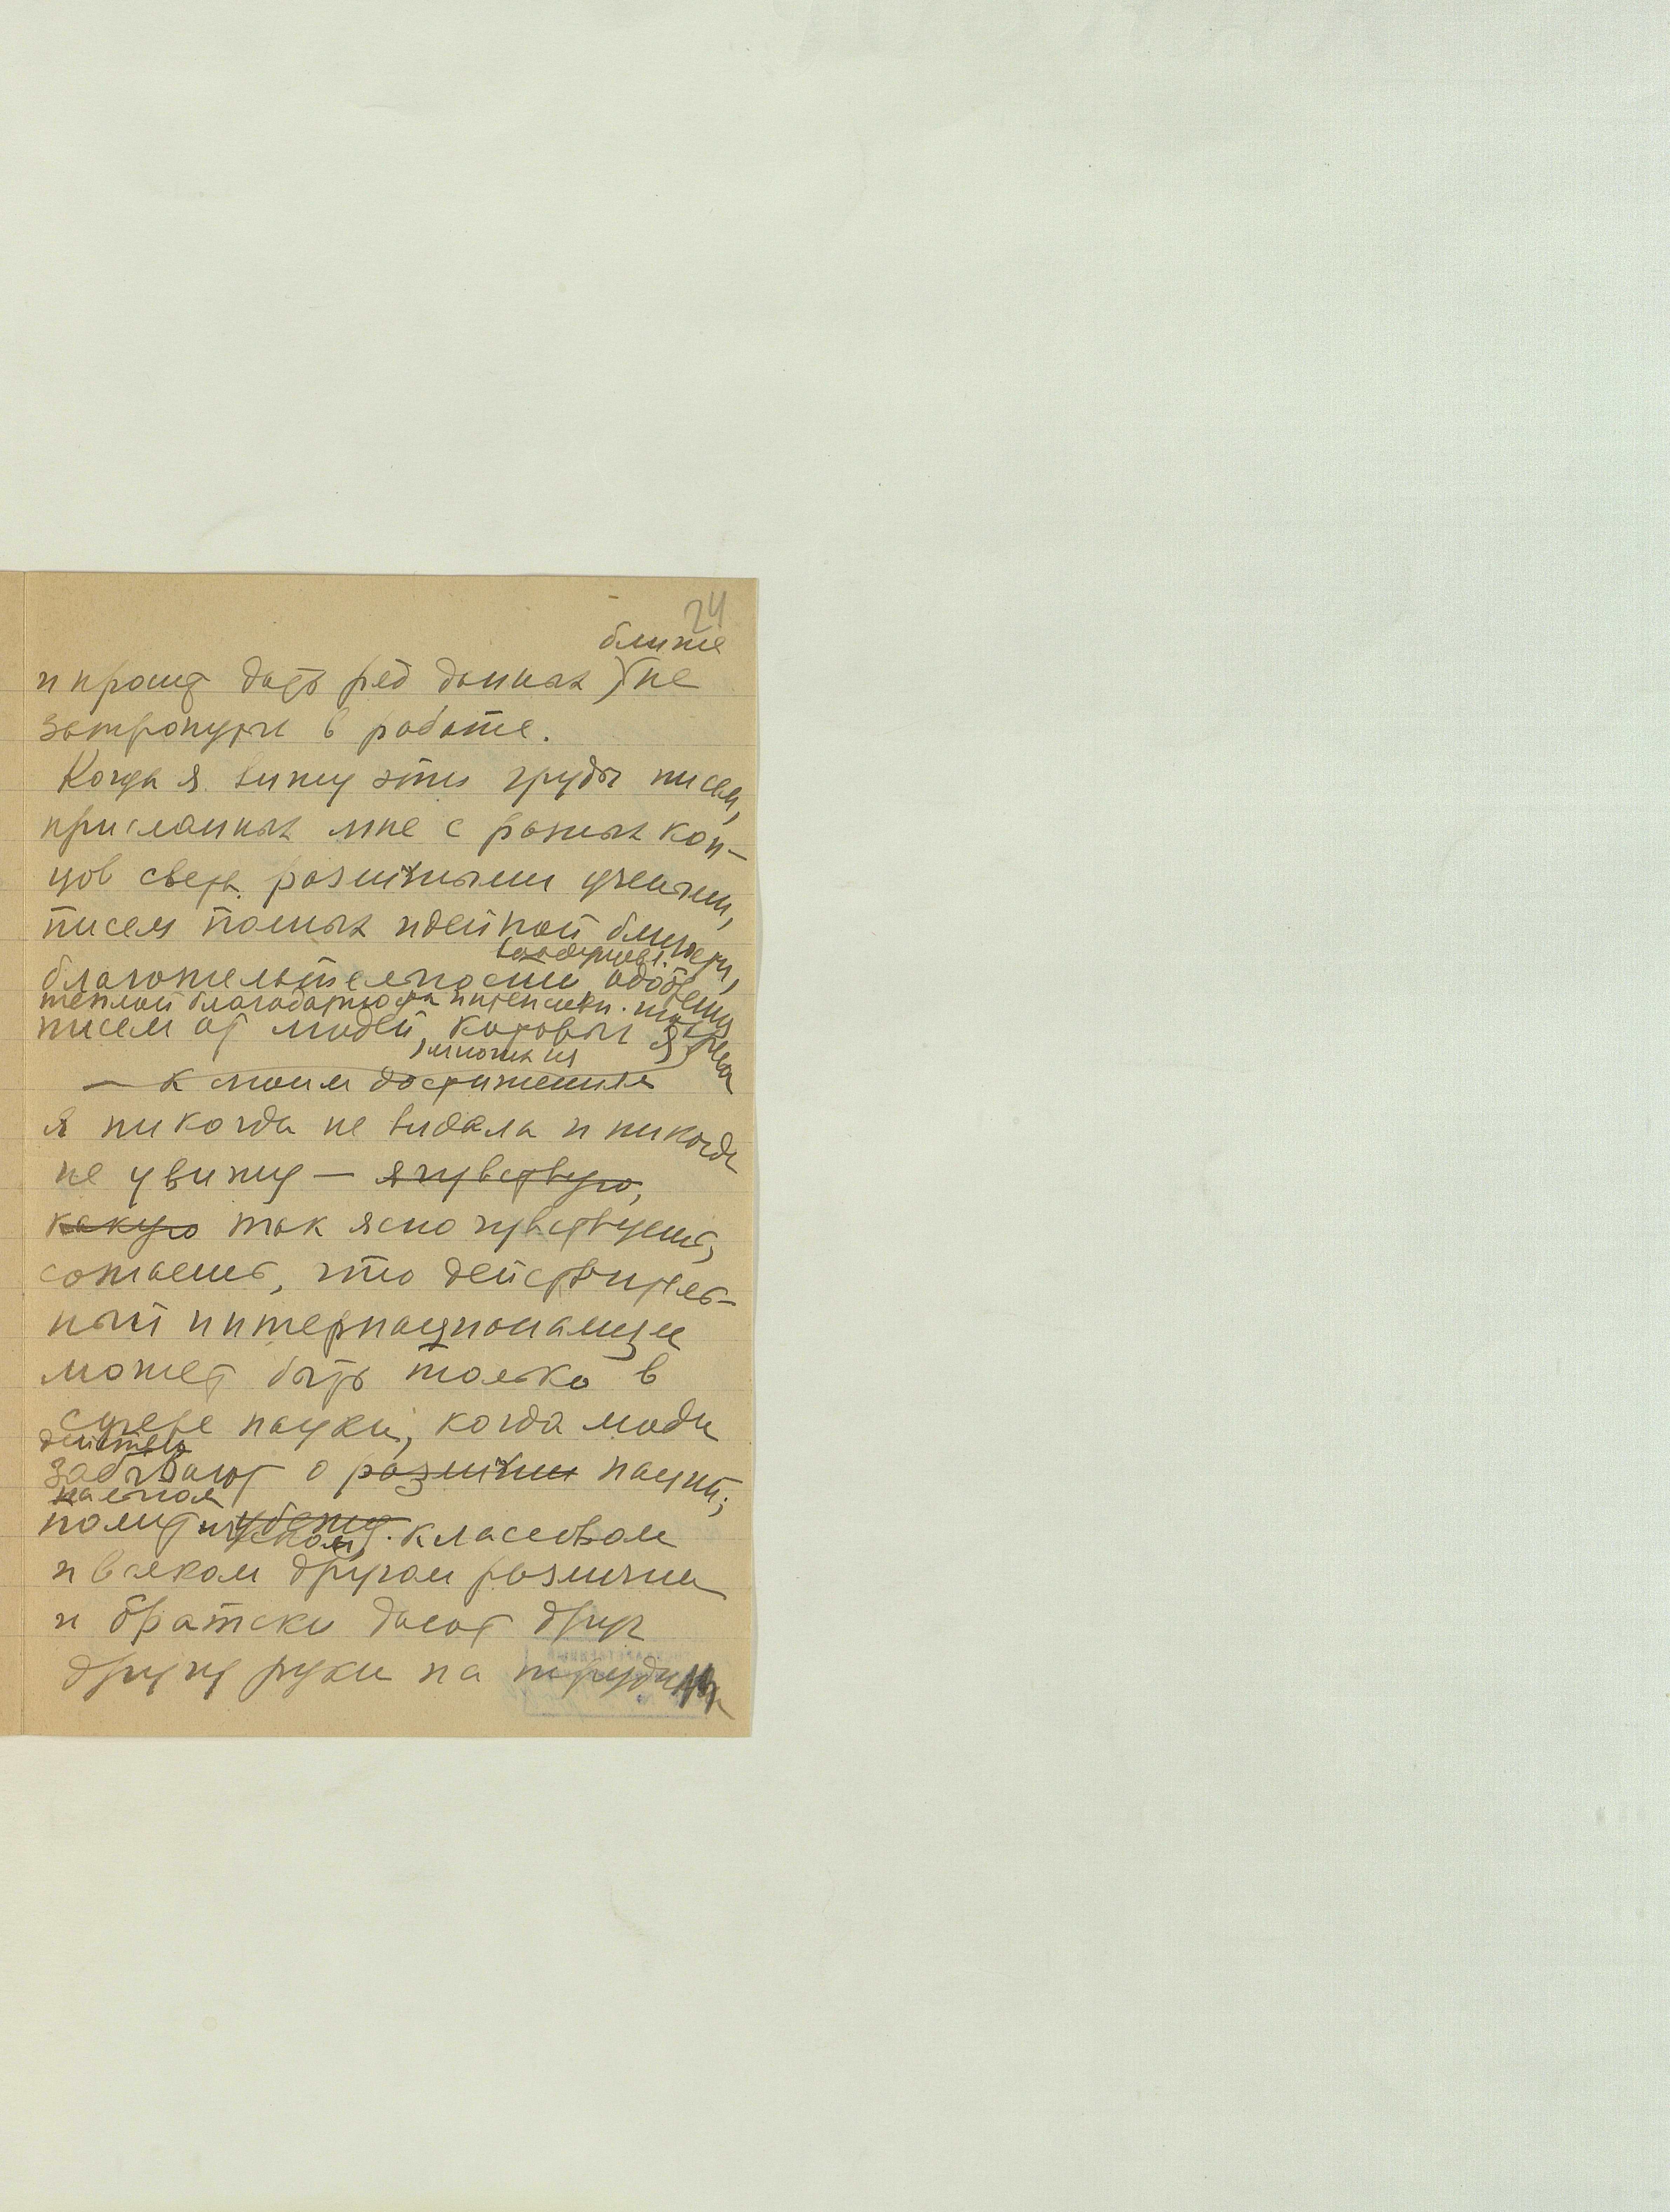 24
ближе
и просит дать ряд данных) (не
затронуты в работе.
Когда я вижу эти груды писем,
присланных мне с разных кон-
цов света различными учеными,
писем полных идейной близости,
благожелательности одобрения
теплой благодарности
писем от людей, которых я
, многих из
— к моим достижениям
я никогда не видала и никогда
не увижу — я чувствую,
какую так ясно чувствуешь,
сознаешь, что действитель-
ный интернационализм
может быть только в
сфере науки, когда люди
действит
забывают о различии нацио-
нальном
политическом, классовом
и всяком другом различии
и братски дают друг
другу руки на трудном